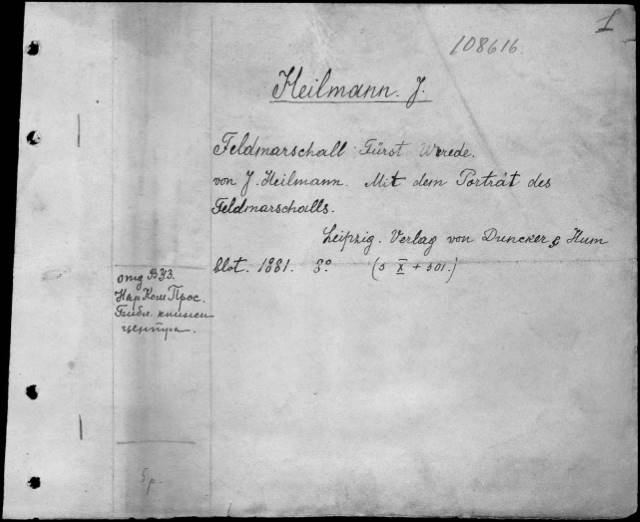 I
108616
Heilmann. J.
Feldmarschall Fürst Wrede.
von J. Heilmann. Mit dem Porträt des
Feldmarschalls.
Leipzig. Verlag von Duncker & Hum
blot. 1881. 8º. (S X + 501.)
отд ВУЗ.
НарКомПрос.
Библ. книжн
центра.
5 р.